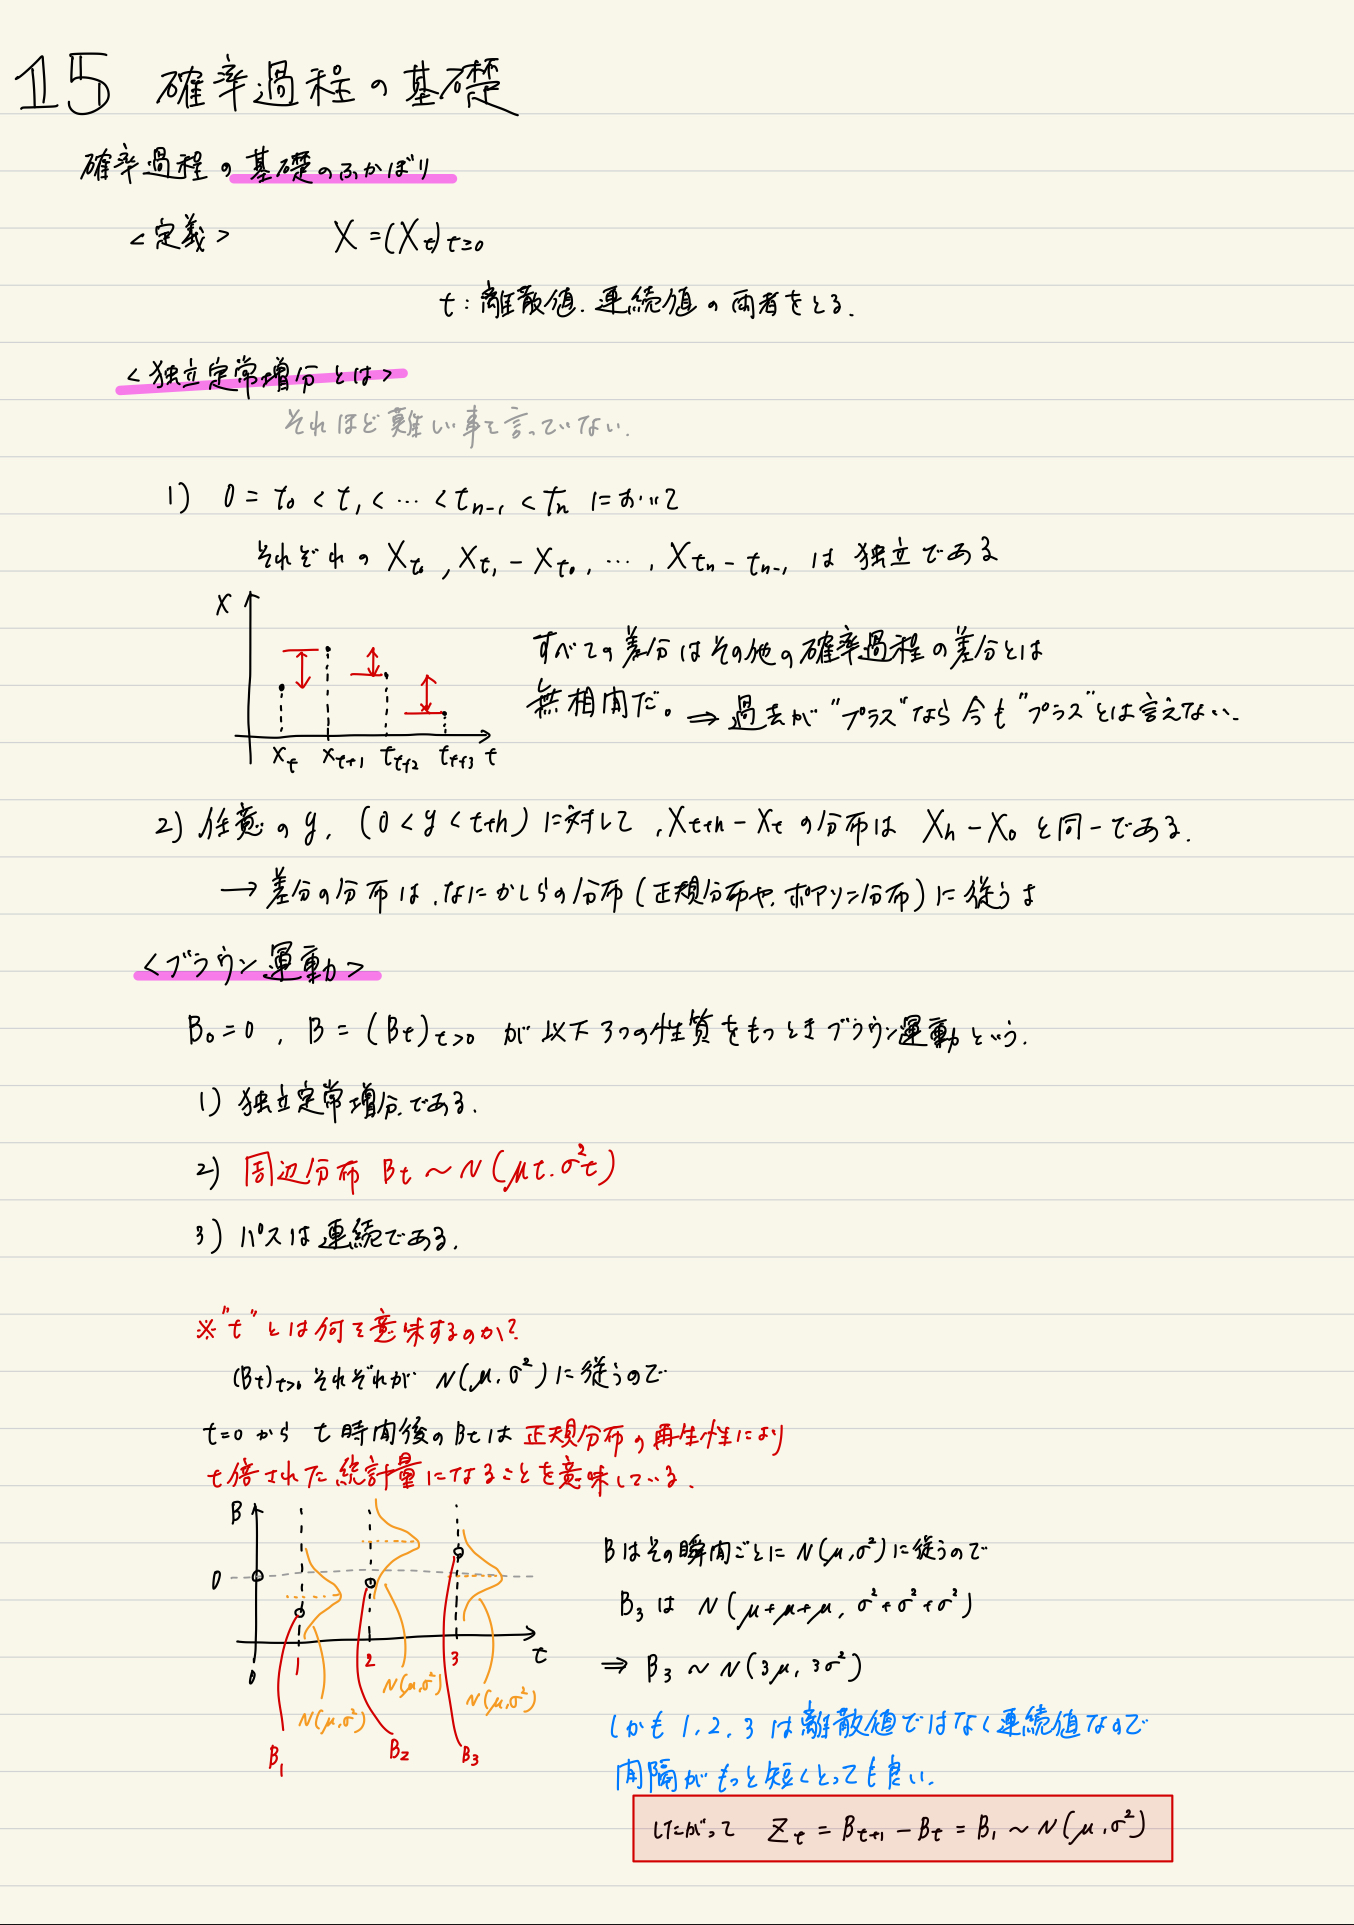 15 確率過程の基礎
確率過程の基礎のふかぼり
<定義> X = (X_t)_{t≥0}
t : 離散値. 連続値の両者をとる.
<独立定常増分とは>
それほど難しい事を言っていない.
1) 0 = t_0 < t_1 < … < t_{n-1} < t_n において
それぞれの X_{t_0} , X_{t_1} - X_{t_0} , … , X_{t_n} - t_{n-1} は独立である
X
すべての差分はその他の確率過程の差分とは
無相関だ。 ⇒ 過去が "プラス" なら今も "プラス" とは言えない.
X_t X_{t+1} t_{t+2} t_{t+3} t
2) 任意の y. (0 < y < t+h) に対して , X_{t+h} - X_t の分布は X_h - X_0 と同一である.
→ 差分の分布は . なにかしらの分布 (正規分布や. ポアソン分布) に従うよ
<ブラウン運動>
B_0 = 0 , B = (B_t)_{t>0} が以下3つの性質をもつときブラウン運動という.
1) 独立定常増分. である.
2) 周辺分布 B_t ~ N(μt. σ²t)
3) パスは連続である.
※ "t" とは何を意味するのか?
(B_t)_{t>0} それぞれが N(μ. σ²) に従うので
t=0 から t 時間後の B_t は 正規分布の再生性により
t倍された統計量になることを意味している.
B
0
0 1 2 3 t
N(μ.σ²) N(μ.σ²) N(μ.σ²)
B_1 B_2 B_3
Bはその瞬間ごとに N(μ,σ²) に従うので
B_3 は N(μ+μ+μ, σ²+σ²+σ²)
⇒ B_3 ~ N(3μ, 3σ²)
しかも 1, 2, 3 は離散値ではなく連続値なので
間隔がもっと短くとっても良い.
したがって Z_t = B_{t+1} - B_t = B_1 ~ N(μ,σ²)